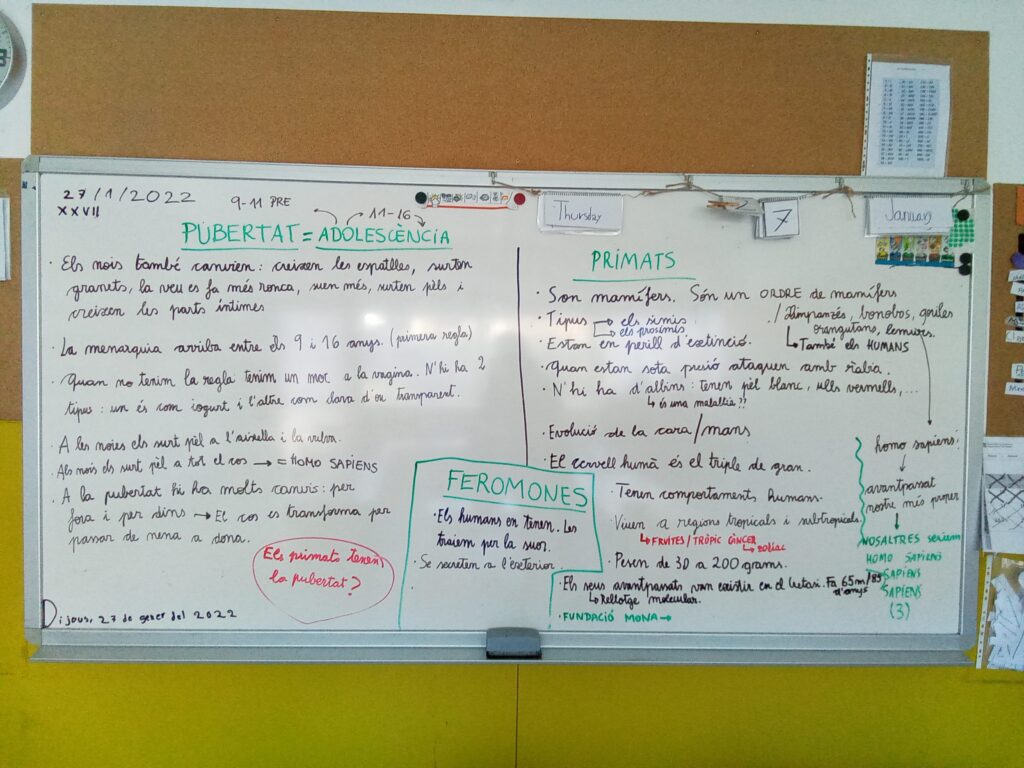 27/1/2022
XXVII
9-11 PRE
11-16
PUBERTAT = ADOLESCÈNCIA
· Els nois també canvien: creixen les espatlles, surten
granets, la veu es fa més ronca, suen més, surten pèls i
creixen les parts íntimes
· La menarquia arriba entre els 9 i 16 anys. (primera regla)
· Quan no tenim la regla tenim un moc a la vagina. N'hi ha 2
tipus: un és com iogurt i l'altre com clara d'ou transparent.
· A les noies els surt pèl a l'aixella i la vulva.
· Als nois els surt pèl a tot el cos → = HOMO SAPIENS
· A la pubertat hi ha molts canvis: per
fora i per dins → El cos es transforma per
passar de nena a dona.
Els primats tenen
la pubertat?
Dijous, 27 de gener del 2022
FEROMONES
· Els humans en tenen. Les
traiem per la suor.
· Se secreten a l'exterior.
Thursday
7
January
PRIMATS
· Son mamífers. Són un ORDRE de mamífers
· Tipus → els simis
→ els prosimis
/ Ximpanzés, bonobos, goril·les
orangutans, lemuirs.
↳ També els HUMANS
· Estan en perill d'extinció.
· Quan estan sota pressió ataquen amb ràbia.
· N'hi ha d'albins: tenen pèl blanc, ulls vermells,...
↳ és una malaltia??
· Evolució de la cara/mans
· El cervell humà és el triple de gran.
· Tenen comportaments humans.
· Viuen a regions tropicals i subtropicals.
↳ FRUITES / TRÒPIC CÀNCER
↳ zodíac
· Pesen de 30 a 200 grams.
· Els seus avantpassats van existir en el Cretasi. Fa 65m/85
d'anys
↳ Rellotge molecular.
· FUNDACIÓ MONA →
homo sapiens:
↓
avantpassat
nostre més proper
↓
NOSALTRES seriem
HOMO SAPIENS
SAPIENS
SAPIENS
(3)